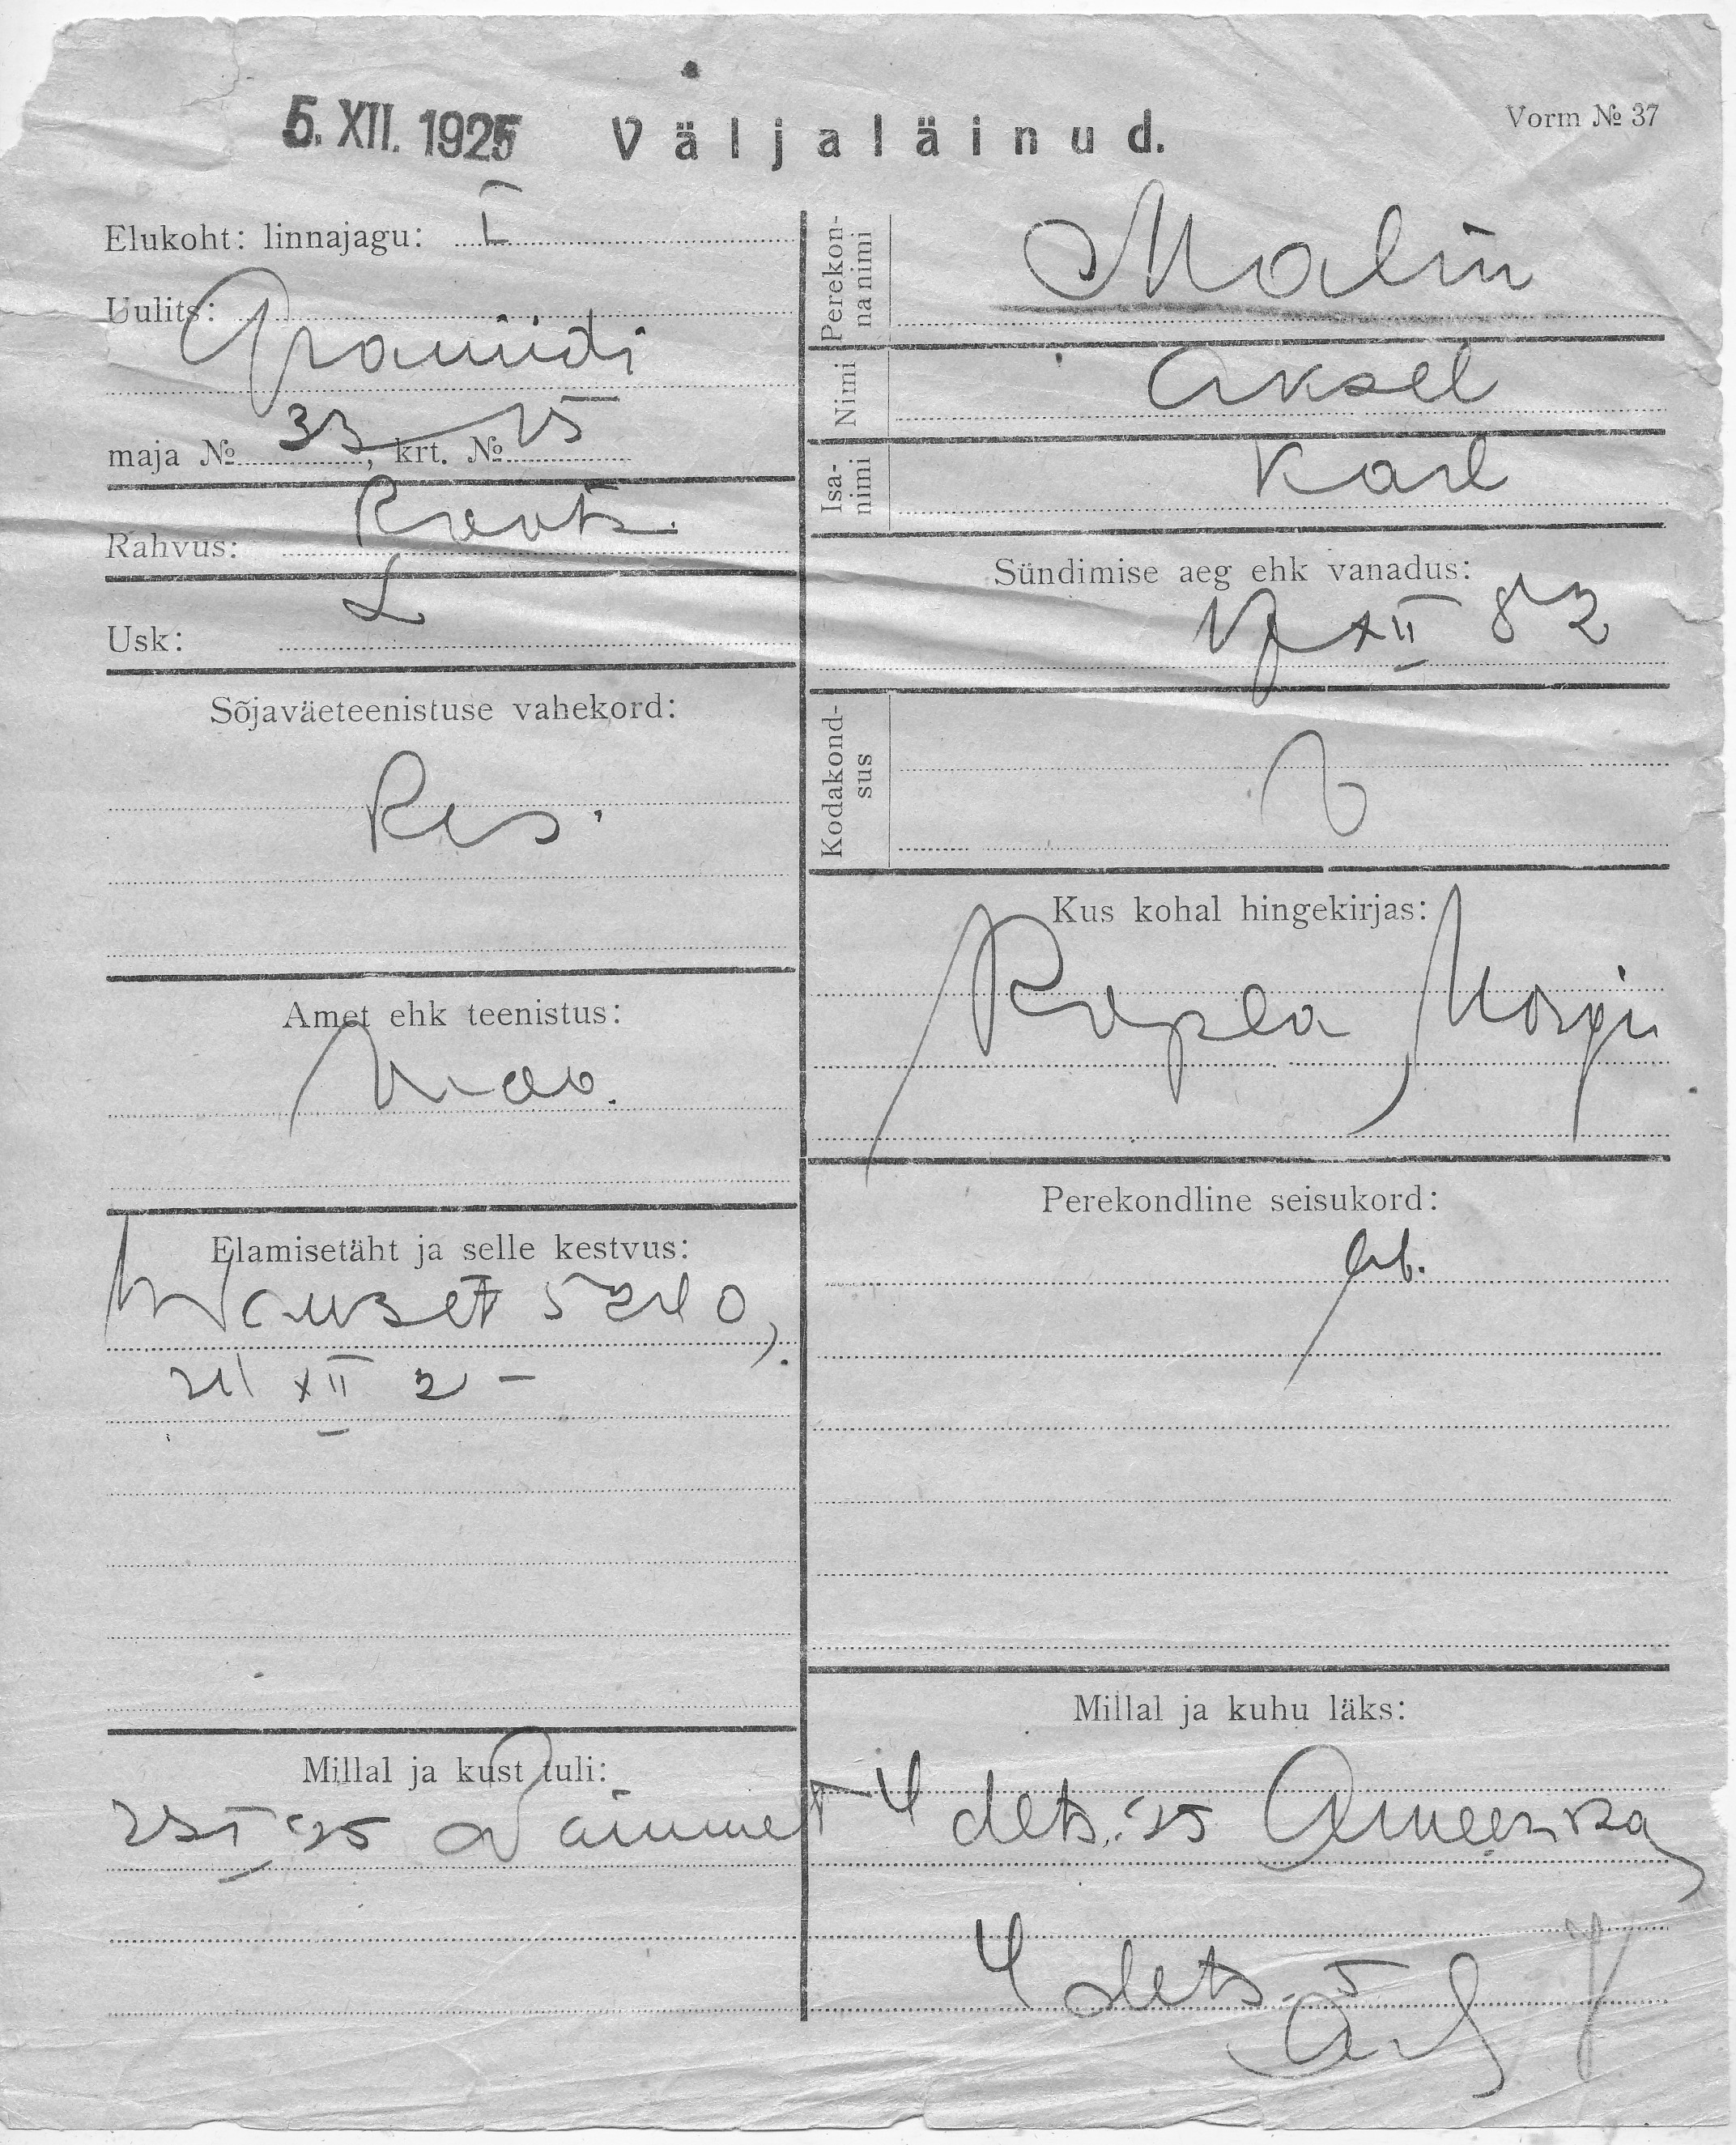 5. XII. 1925 Väljaläinud.
Vorm № 37
Elukoht: linnajagu: I
Uulits: Graniidi
maja № 33, krt. № 15
Rahvus: Roots.
Usk: L
Sõjaväeteenistuse vahekord:
Res.
Amet ehk teenistus:
Elamisetäht ja selle kestvus:
5240,
24 XII 2 -
Millal ja kust tuli:
'25
Perekonna nimi Malin
Nimi Aksel
Isanimi Karl
Sündimise aeg ehk vanadus:
XII 82
Kodakondsus
Kus kohal hingekirjas:
Millal ja kuhu läks:
4 dets. '25 Ameerika
4 dets. 5
Perekondline seisukord:
ab.